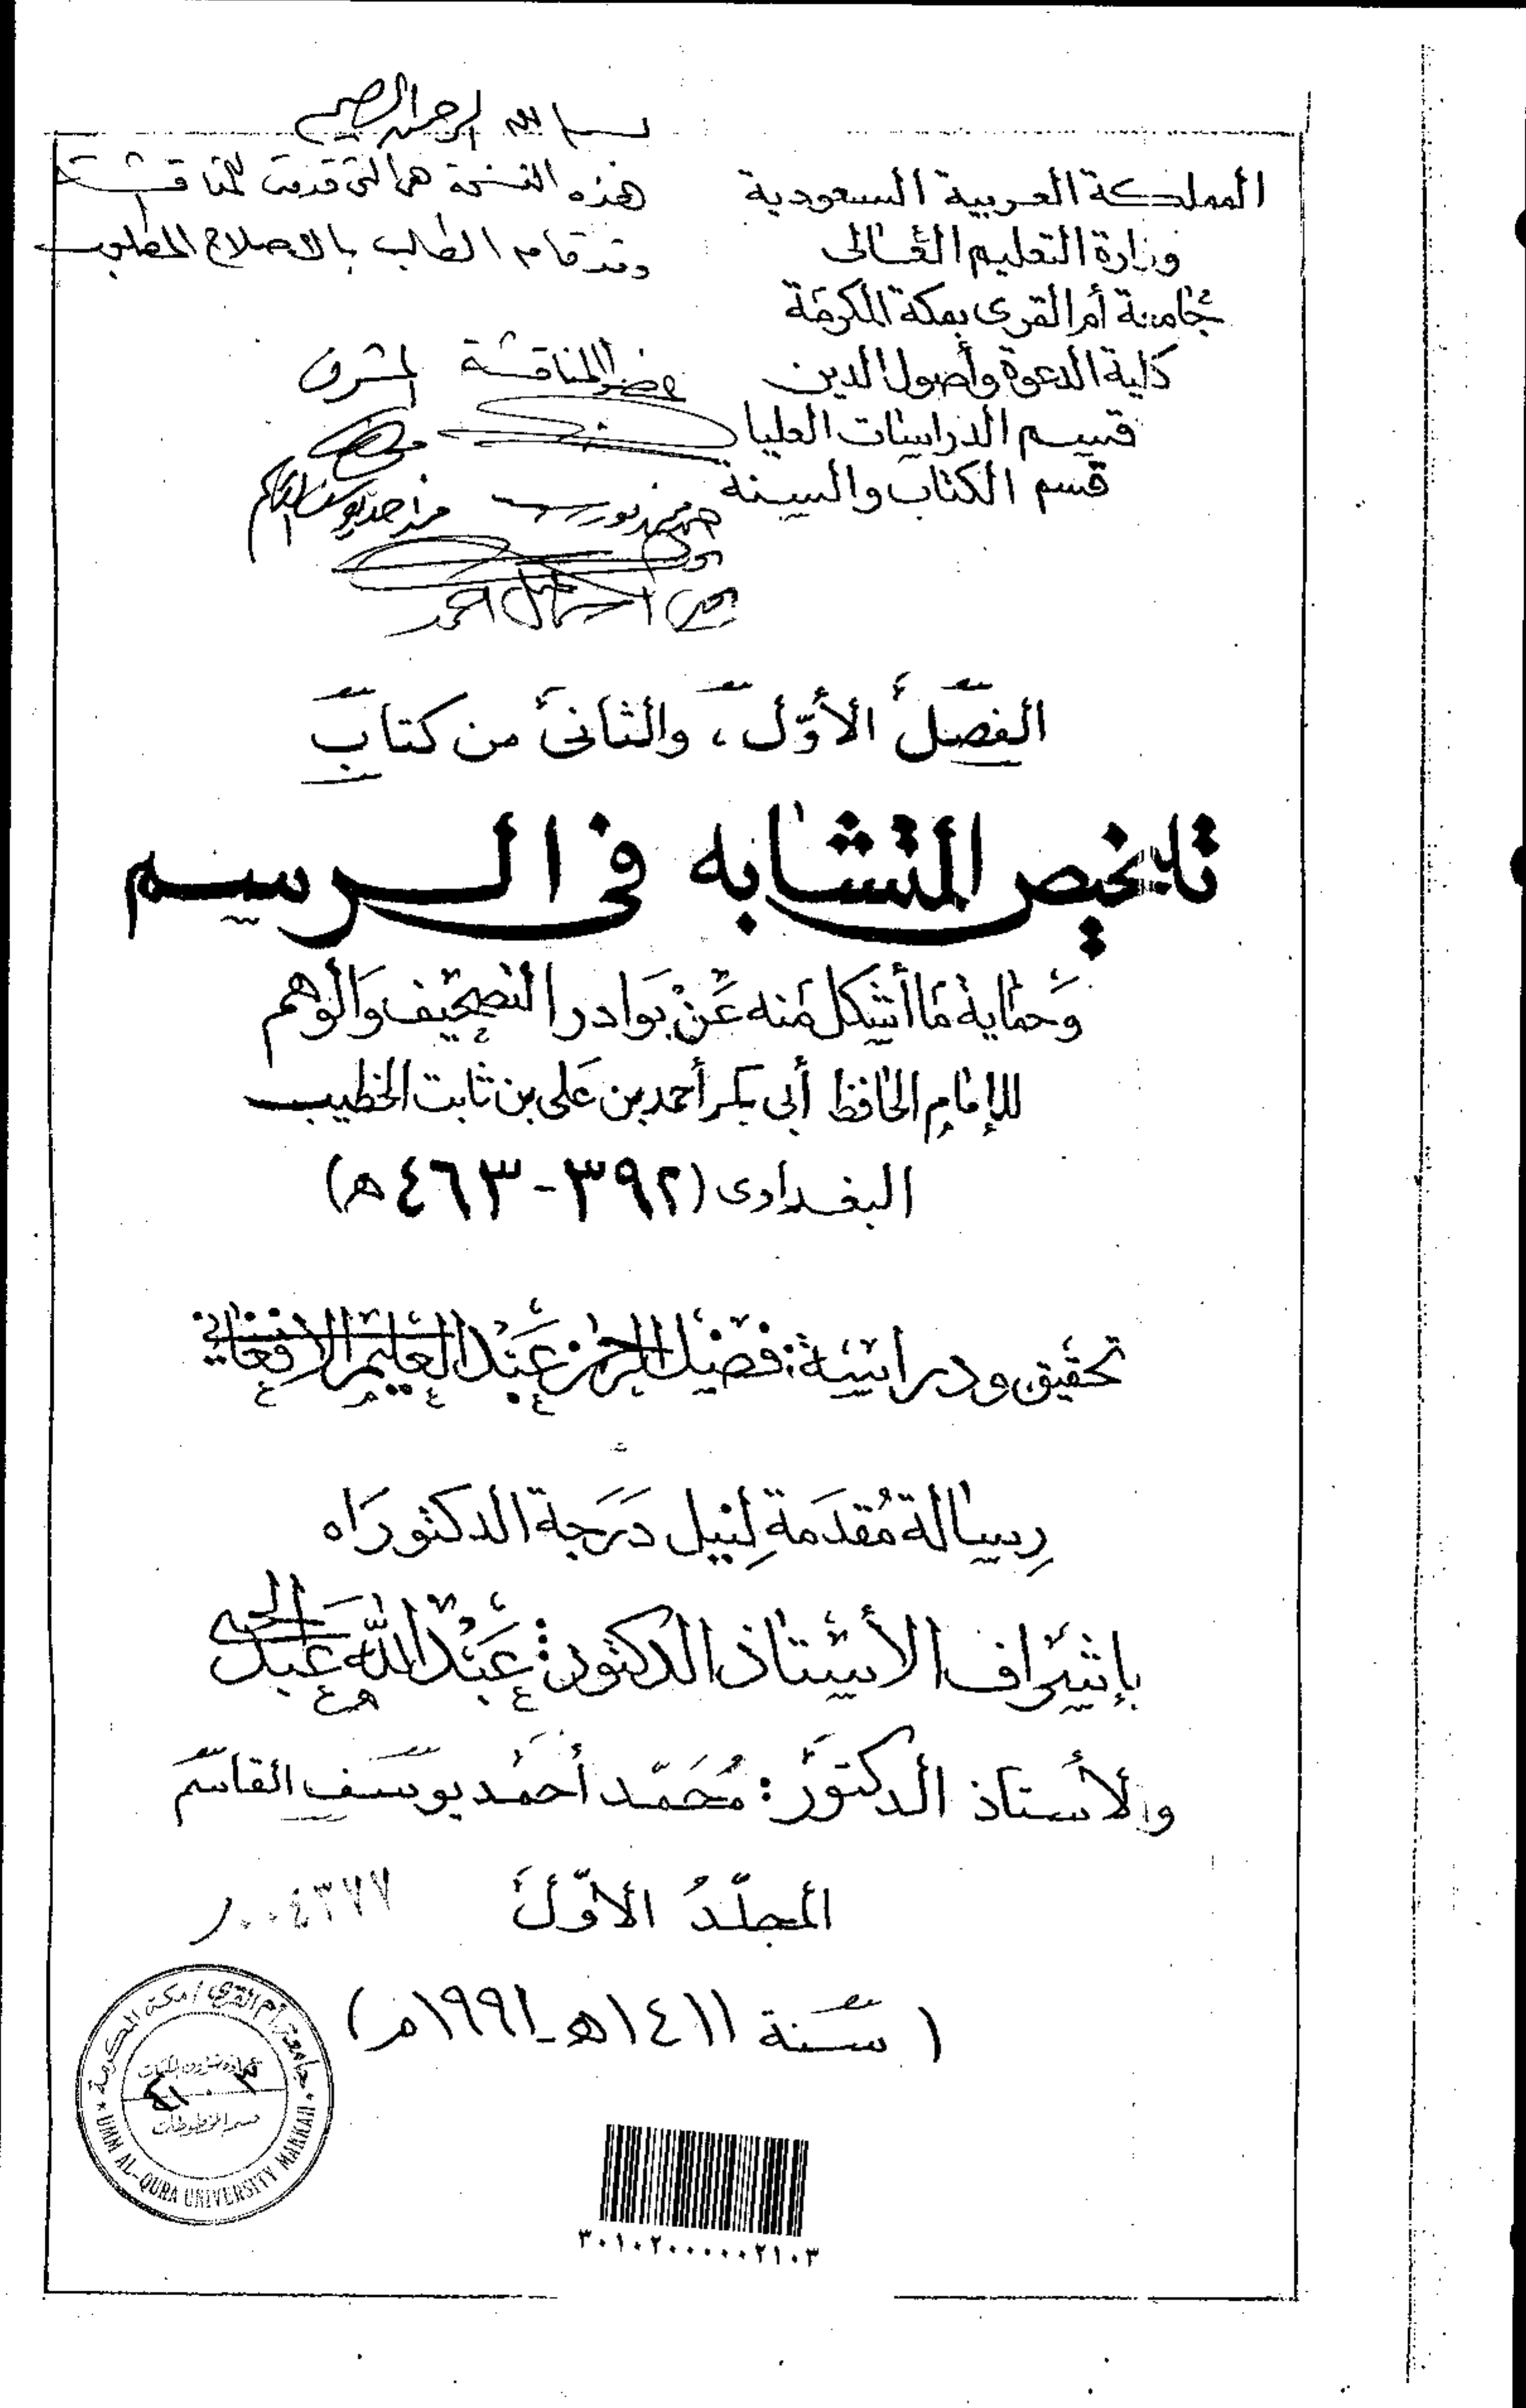 بسم الله الرحمن الرحيم
هذه النسخة هي التي قدمت للمناقشة
وقد قام الطالب بالاصلاح المطلوب
المملكة العربية السعودية
وزارة التعليم العالى
جامعة أم القرى بمكة المكرمة
كلية الدعوة وأصول الدين
قسم الدراسات العليا
قسم الكتاب والسنة
عضو المناقشة المشرف
محمد احمد يوسف القاسم
الفصل الأوّل، والثانى من كتاب
تلخيص المتشابه فى الرسم
وَحماية مَا أشكل منه عَنْ بَوادر التصحيف وَالوهم
للإمام الحافظ أبى بكر أحمد بن عَلى بن ثابت الخطيب
البغدادى (٣٩٢-٤٦٣ه)
تحقيق ودراسة: فضيل الرحمن عَبْد العليم الافغاني
رِسالة مُقدَمة لِنيل دَرَجة الدكتورَاه
بإشراف الأستاذ الدكتور: عَبْد الله عَبد الحي
والأستاذ الدكتور: مُحَمّد أحمْد يوسف القاسم
المجلّدُ الأوّل
٠٠٤٣٧٧
(سنة ١٤١١ه-١٩٩١م)
جامعة أم القرى / مكة المكرمة
عمادة شئون المكتبات
قسم المخطوطات
UMM AL-QURA UNIVERSITY MAKKAH
٣٠١٠٢٠٠٠٠٠٢١٠٣